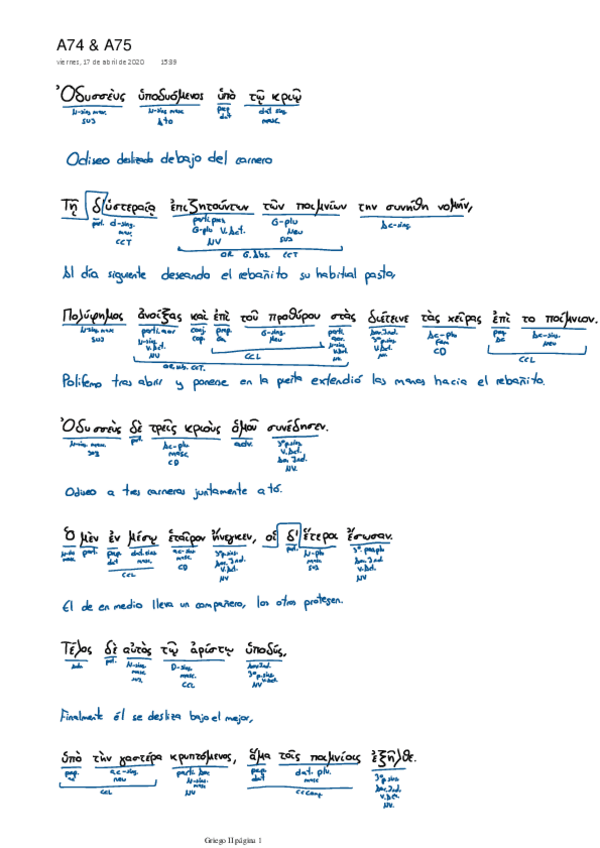 A74 & A75
viernes, 17 de abril de 2020 15:39
Ὀδυσσεὺς ὑποδυόμενος ὑπὸ τῷ κριῷ
N-sing. masc. N-sing. masc. prep. dat. sing.
SUJ Atο dat masc.
Odiseo deslizado debajo del carnero
Τῇ δ' ὑστεραίᾳ ἐπιζητούντων τῶν ποιμνίων την συνήθη νομήν,
part. d-sing. G-plu Ac-sing.
G-plu V. Act. Neu
CCT NV SUJ
OR G. Abs. CCT
Al día siguiente deseando el rebañito su habitual pasto,
Πολύφημος ἀνοίξας καὶ ἐπὶ τοῦ προθύρου στὰς διέτεινε τὰς χεῖρας ἐπὶ το ποίμνιον.
N-sing. masc. conj. prep. G-sing. Ac-plu prep. Ac-sing.
SUJ V. Act. cop. Neu fem Neu
NV CCL CD CCL
Polifemo tras abrir y ponerse en la puerta extendió las manos hacia el rebañito.
Ὀδυσσεὺς δὲ τρεῖς κριοὺς ὁμοῦ συνέδησεν.
N-sing. masc. part. Ac-plu adv. 3ª p. sing.
SUJ masc V. Act.
CD Aor. Ind.
NV.
Odiseo a tres carneros juntamente ató.
Ὁ μὲν ἐν μέσῳ ἑταῖρον ἤνεγκεν, οἱ δ' ἕτεροι ἔσωσαν.
part. prep. dat. sing. ac-sing. 3ª p. sing. part. N-plu
dat masc. masc. Aor. Ind. masc
CCL CD V. Act. SUJ V. Act.
NV NV
El de en medio lleva un compañero, los otros protegen.
Τέλος δὲ αὐτὸς τῷ ἀρίστῳ ὑποδύς,
adv. part. N-sing. D-sing. Aor. Ind.
masc masc.
CCL NV
Finalmente él se desliza bajo el mejor,
ὑπὸ τὴν γαστέρα κρυπτόμενος, ἅμα τοῖς ποιμνίοις ἐξῆλθε.
prep. ac-sing. prep. dat. plu. 3ª p. sing.
N-sing. dat neu Aor. Ind.
CCL NV V. Act.
NV.
Griego II página 1